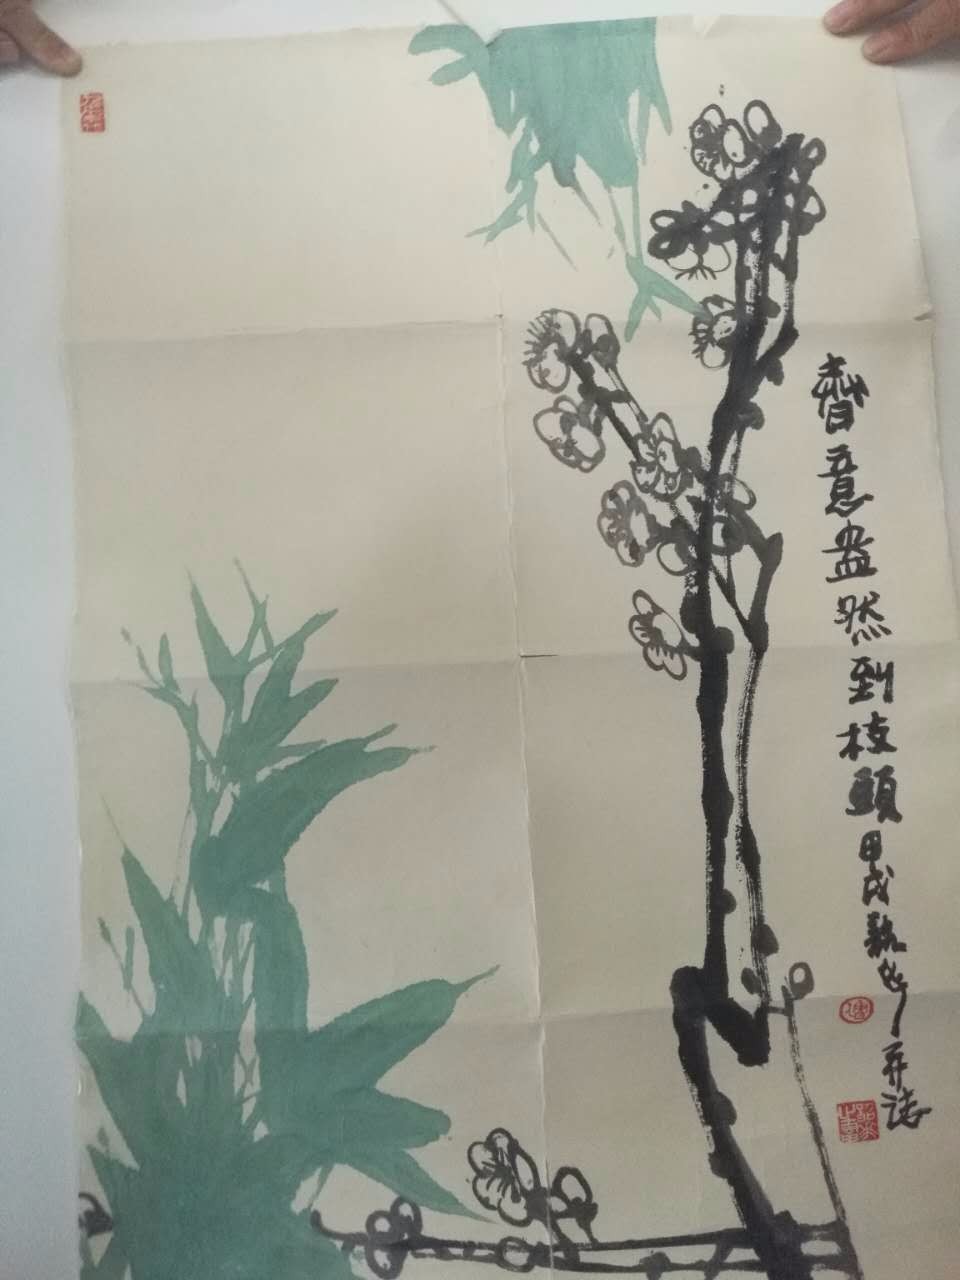 春意盎然到枝頭甲戌并誌